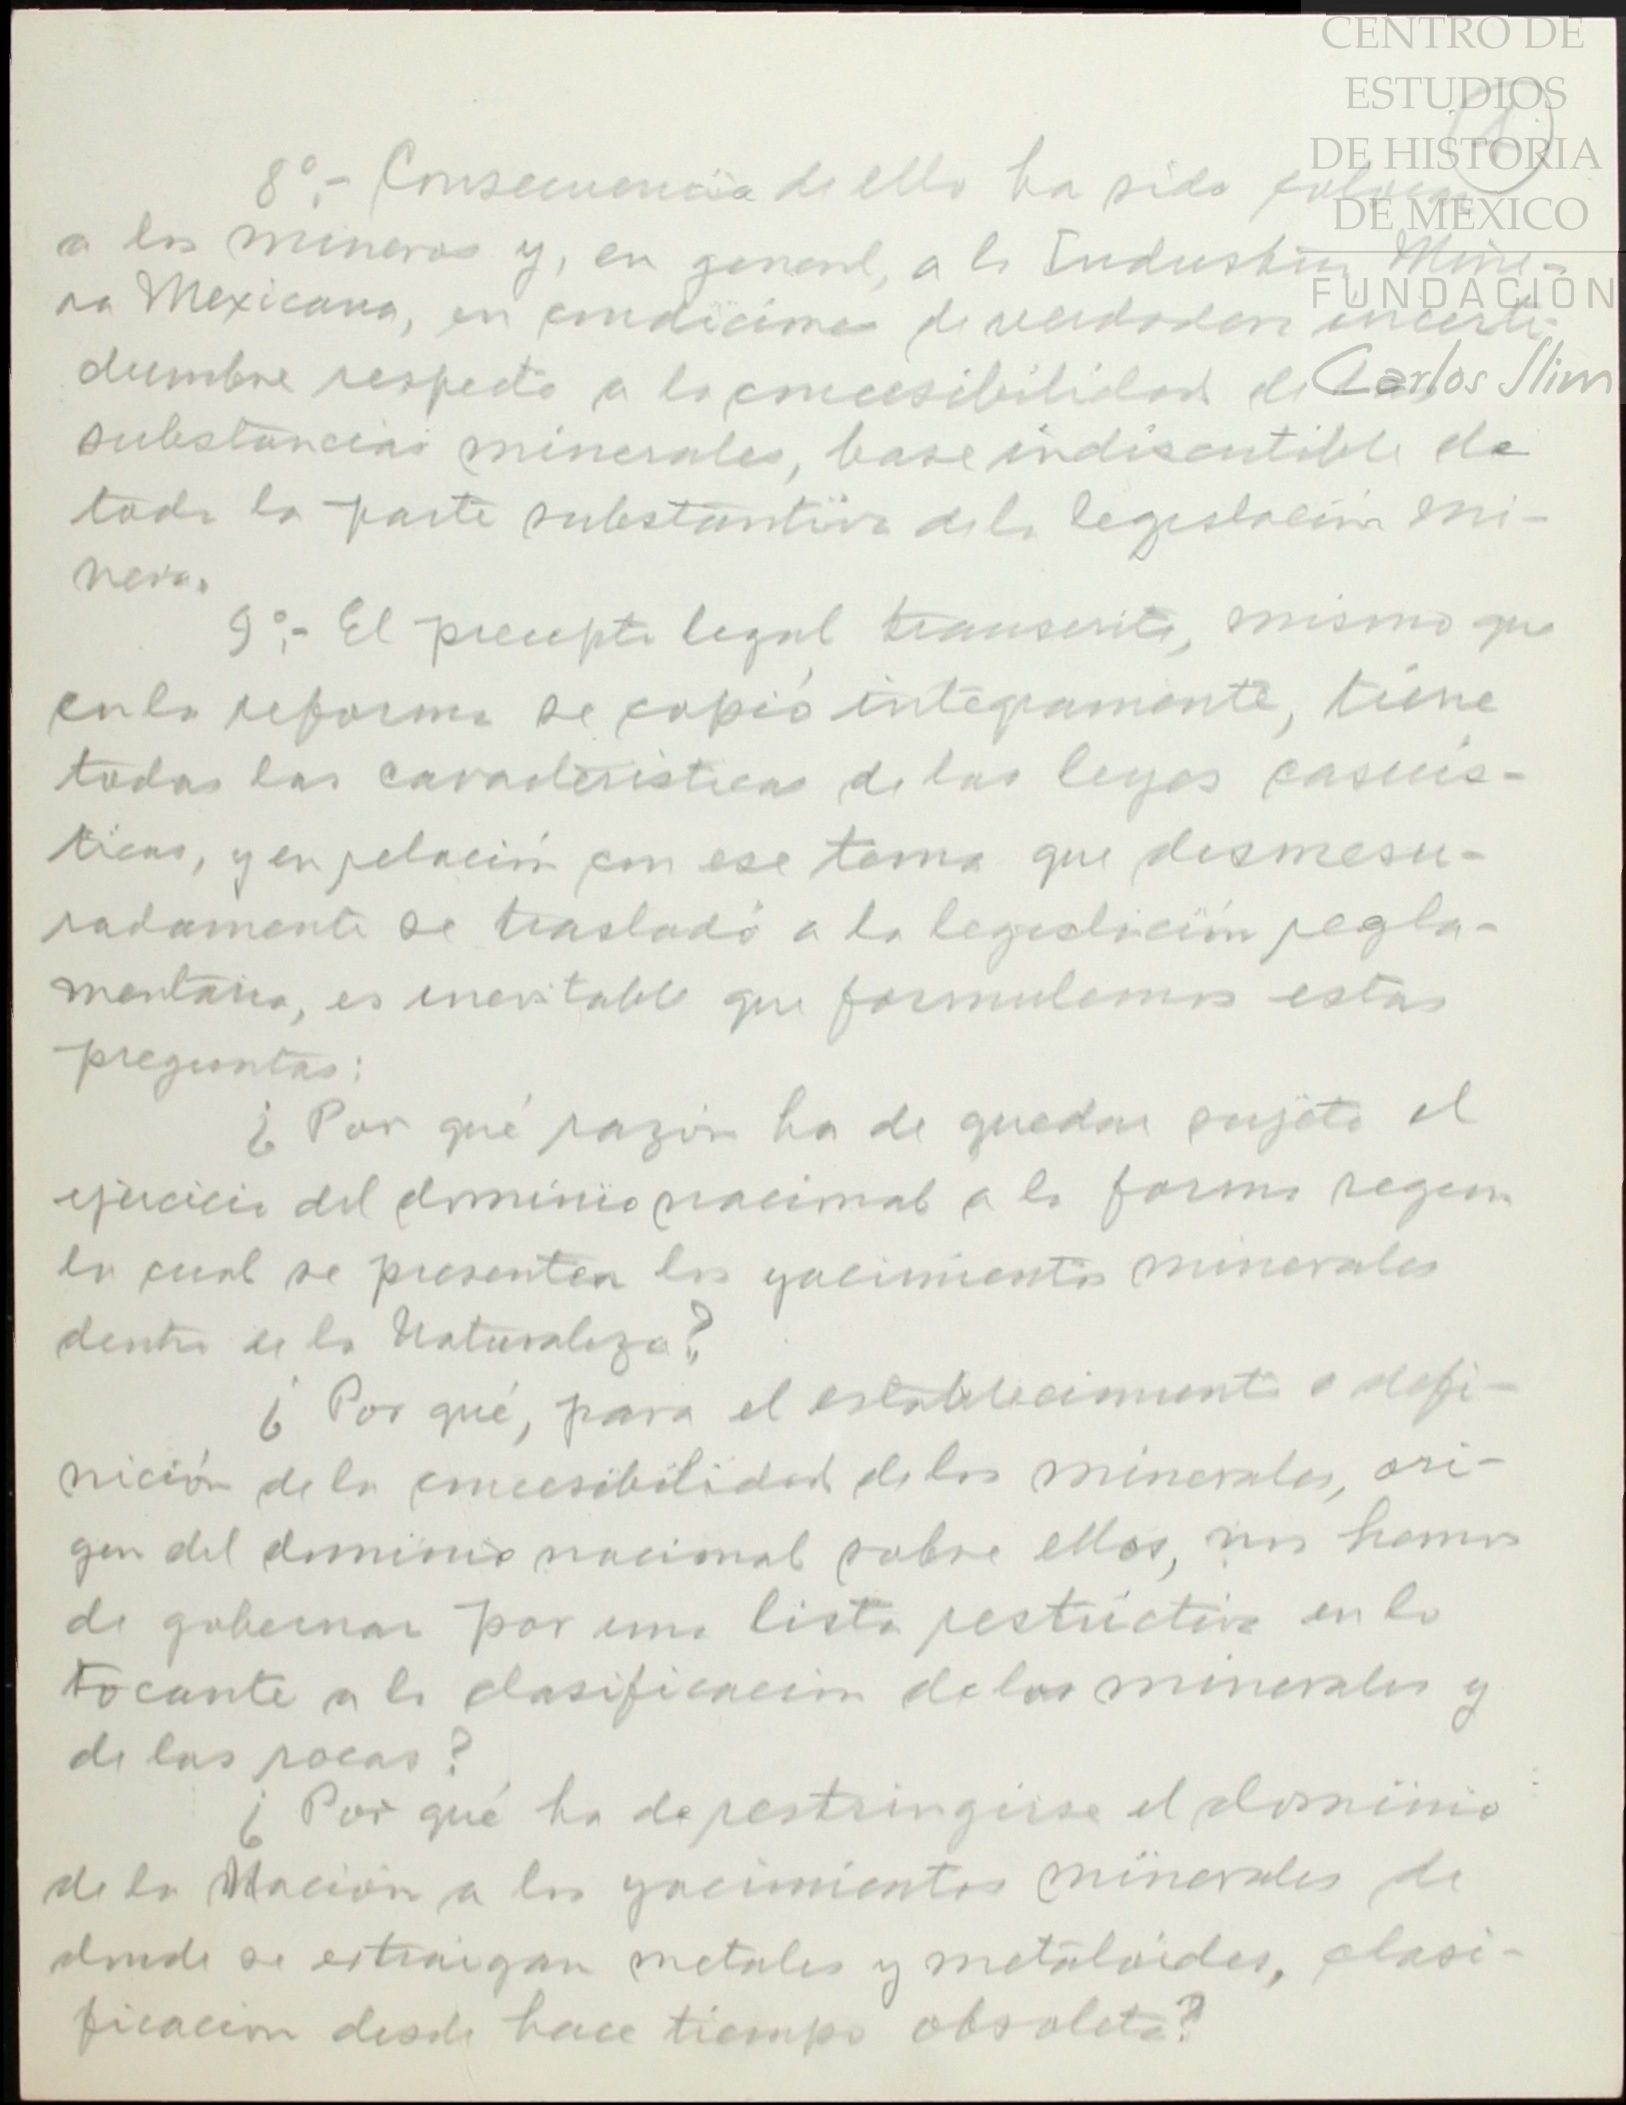 CENTRO DE
ESTUDIOS
DE HISTORIA
DE MEXICO
FUNDACIÓN
Carlos Slim
8°.- Consecuencia de ello ha sido colocar
a los mineros y, en general, a la Industria Mine-
ra Mexicana, en condiciones de verdadera incerti-
dumbre respecto a la concesibilidad de las
substancias minerales, base indiscutible de
toda la parte substantiva de la legislación mi-
nera.
9°.- El precepto legal transcrito, mismo que
en la reforma se copió íntegramente, tiene
todas las características de las leyes casuís-
ticas, y en relación con ese tema que desmesu-
radamente se trasladó a la legislación regla-
mentaria, es inevitable que formulemos estas
preguntas:
¿Por qué razón ha de quedar sujeto el
ejercicio del dominio nacional a la forma según
la cual se presenten los yacimientos minerales
dentro de la Naturaleza?
¿Por qué, para el establecimiento o defi-
nición de la concesibilidad de los minerales, ori-
gen del dominio nacional sobre ellos, nos hemos
de gobernar por una lista restrictiva en lo
tocante a la clasificación de los minerales y
de las rocas?
¿Por qué ha de restringirse el dominio
de la Nación a los yacimientos minerales de
donde se extraigan metales y metaloides, clasi-
ficación desde hace tiempo obsoleta?